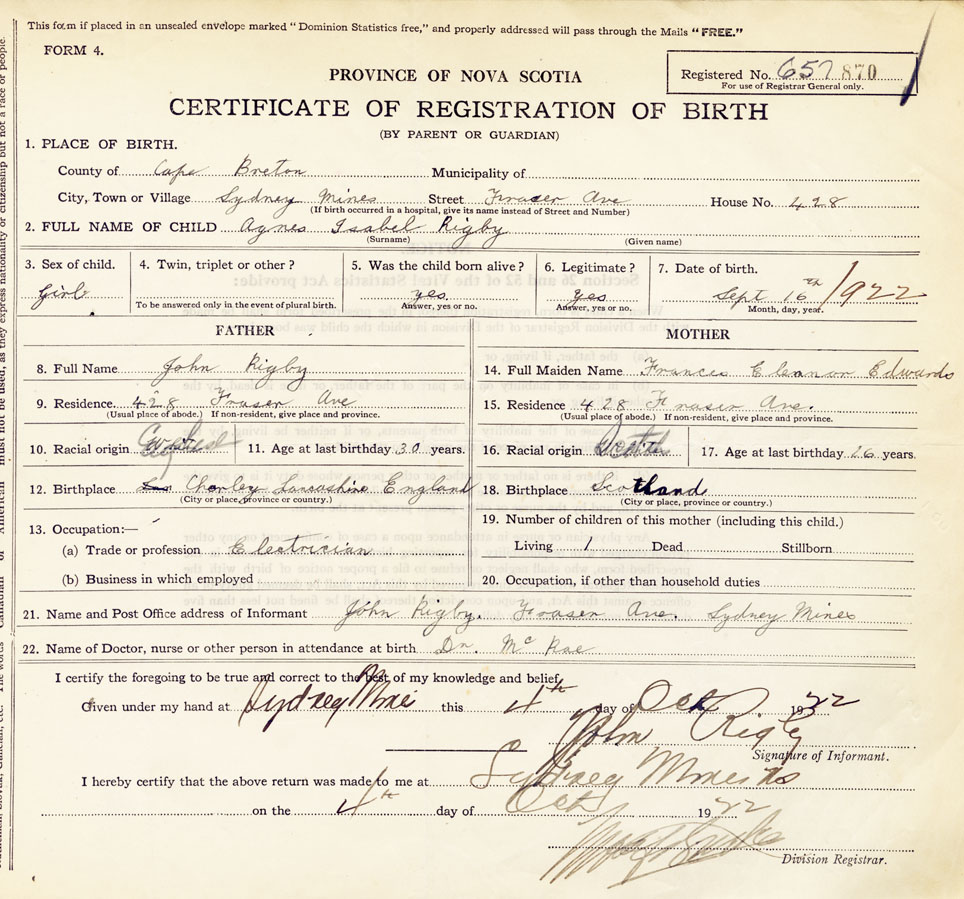 This form if placed in an unsealed envelope marked "Dominion Statistics free," and properly addressed will pass through the Mails "FREE."
FORM 4.
Registered No. 657 870
For use of Registrar General only.
PROVINCE OF NOVA SCOTIA
CERTIFICATE OF REGISTRATION OF BIRTH
(BY PARENT OR GUARDIAN)
1. PLACE OF BIRTH.
County of Cape Breton Municipality of
City, Town or Village Sydney Mines Street Fraser Ave House No. 428
(If birth occurred in a hospital, give its name instead of Street and Number)
2. FULL NAME OF CHILD Agnes Isabel Rigby
(Surname) (Given name)
3. Sex of child. Girl
4. Twin, triplet or other?
To be answered only in the event of plural birth.
5. Was the child born alive? yes
Answer, yes or no.
6. Legitimate? Yes
Answer, yes or no.
7. Date of birth. Sept 16th / 1922
Month, day, year.
FATHER
8. Full Name John Rigby
9. Residence. 428 Fraser Ave
(Usual place of abode.) If non-resident, give place and province.
10. Racial origin
11. Age at last birthday 30 years.
12. Birthplace Chorley Lancashire England
(City or place, province or country.)
13. Occupation:—
(a) Trade or profession Electrician
(b) Business in which employed
MOTHER
14. Full Maiden Name Frances Eleanor Edwards
15. Residence 428 Fraser Ave.
(Usual place of abode.) If non-resident, give place and province.
16. Racial origin
17. Age at last birthday 26 years.
18. Birthplace Scotland
(City or place, province or country.)
19. Number of children of this mother (including this child.)
Living 1 Dead Stillborn
20. Occupation, if other than household duties
21. Name and Post Office address of Informant John Rigby. Fraser Ave. Sydney Mines
22. Name of Doctor, nurse or other person in attendance at birth Dr. McRae
I certify the foregoing to be true and correct to the best of my knowledge and belief.
Given under my hand at Sydney Mines this 4th day of Oct 1922
John Rigby
Signature of Informant.
I hereby certify that the above return was made to me at Sydney Mines
on the 4th day of Oct 1922
Division Registrar.